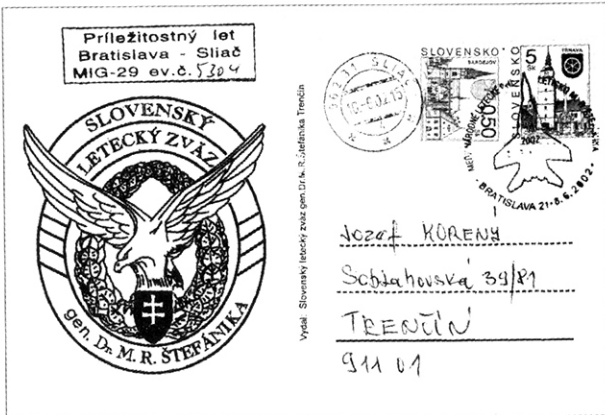 Príležitostný let
Bratislava - Sliač
MIG-29 ev.č. 5304
SLOVENSKÝ
LETECKÝ ZVÄZ
gen. Dr. M. R. ŠTEFÁNIKA
Vydal: Slovenský letecký zväz gen.Dr.M.R.Štefánika Trenčín
SLIAČ
SLOVENSKO
BARDEJOV
0,50
5
SK
TRNAVA
SLOVENSKO
2002
BRATISLAVA 21.-8.6.2002
Jozef KORENY
39/81
TRENČÍN
911 01